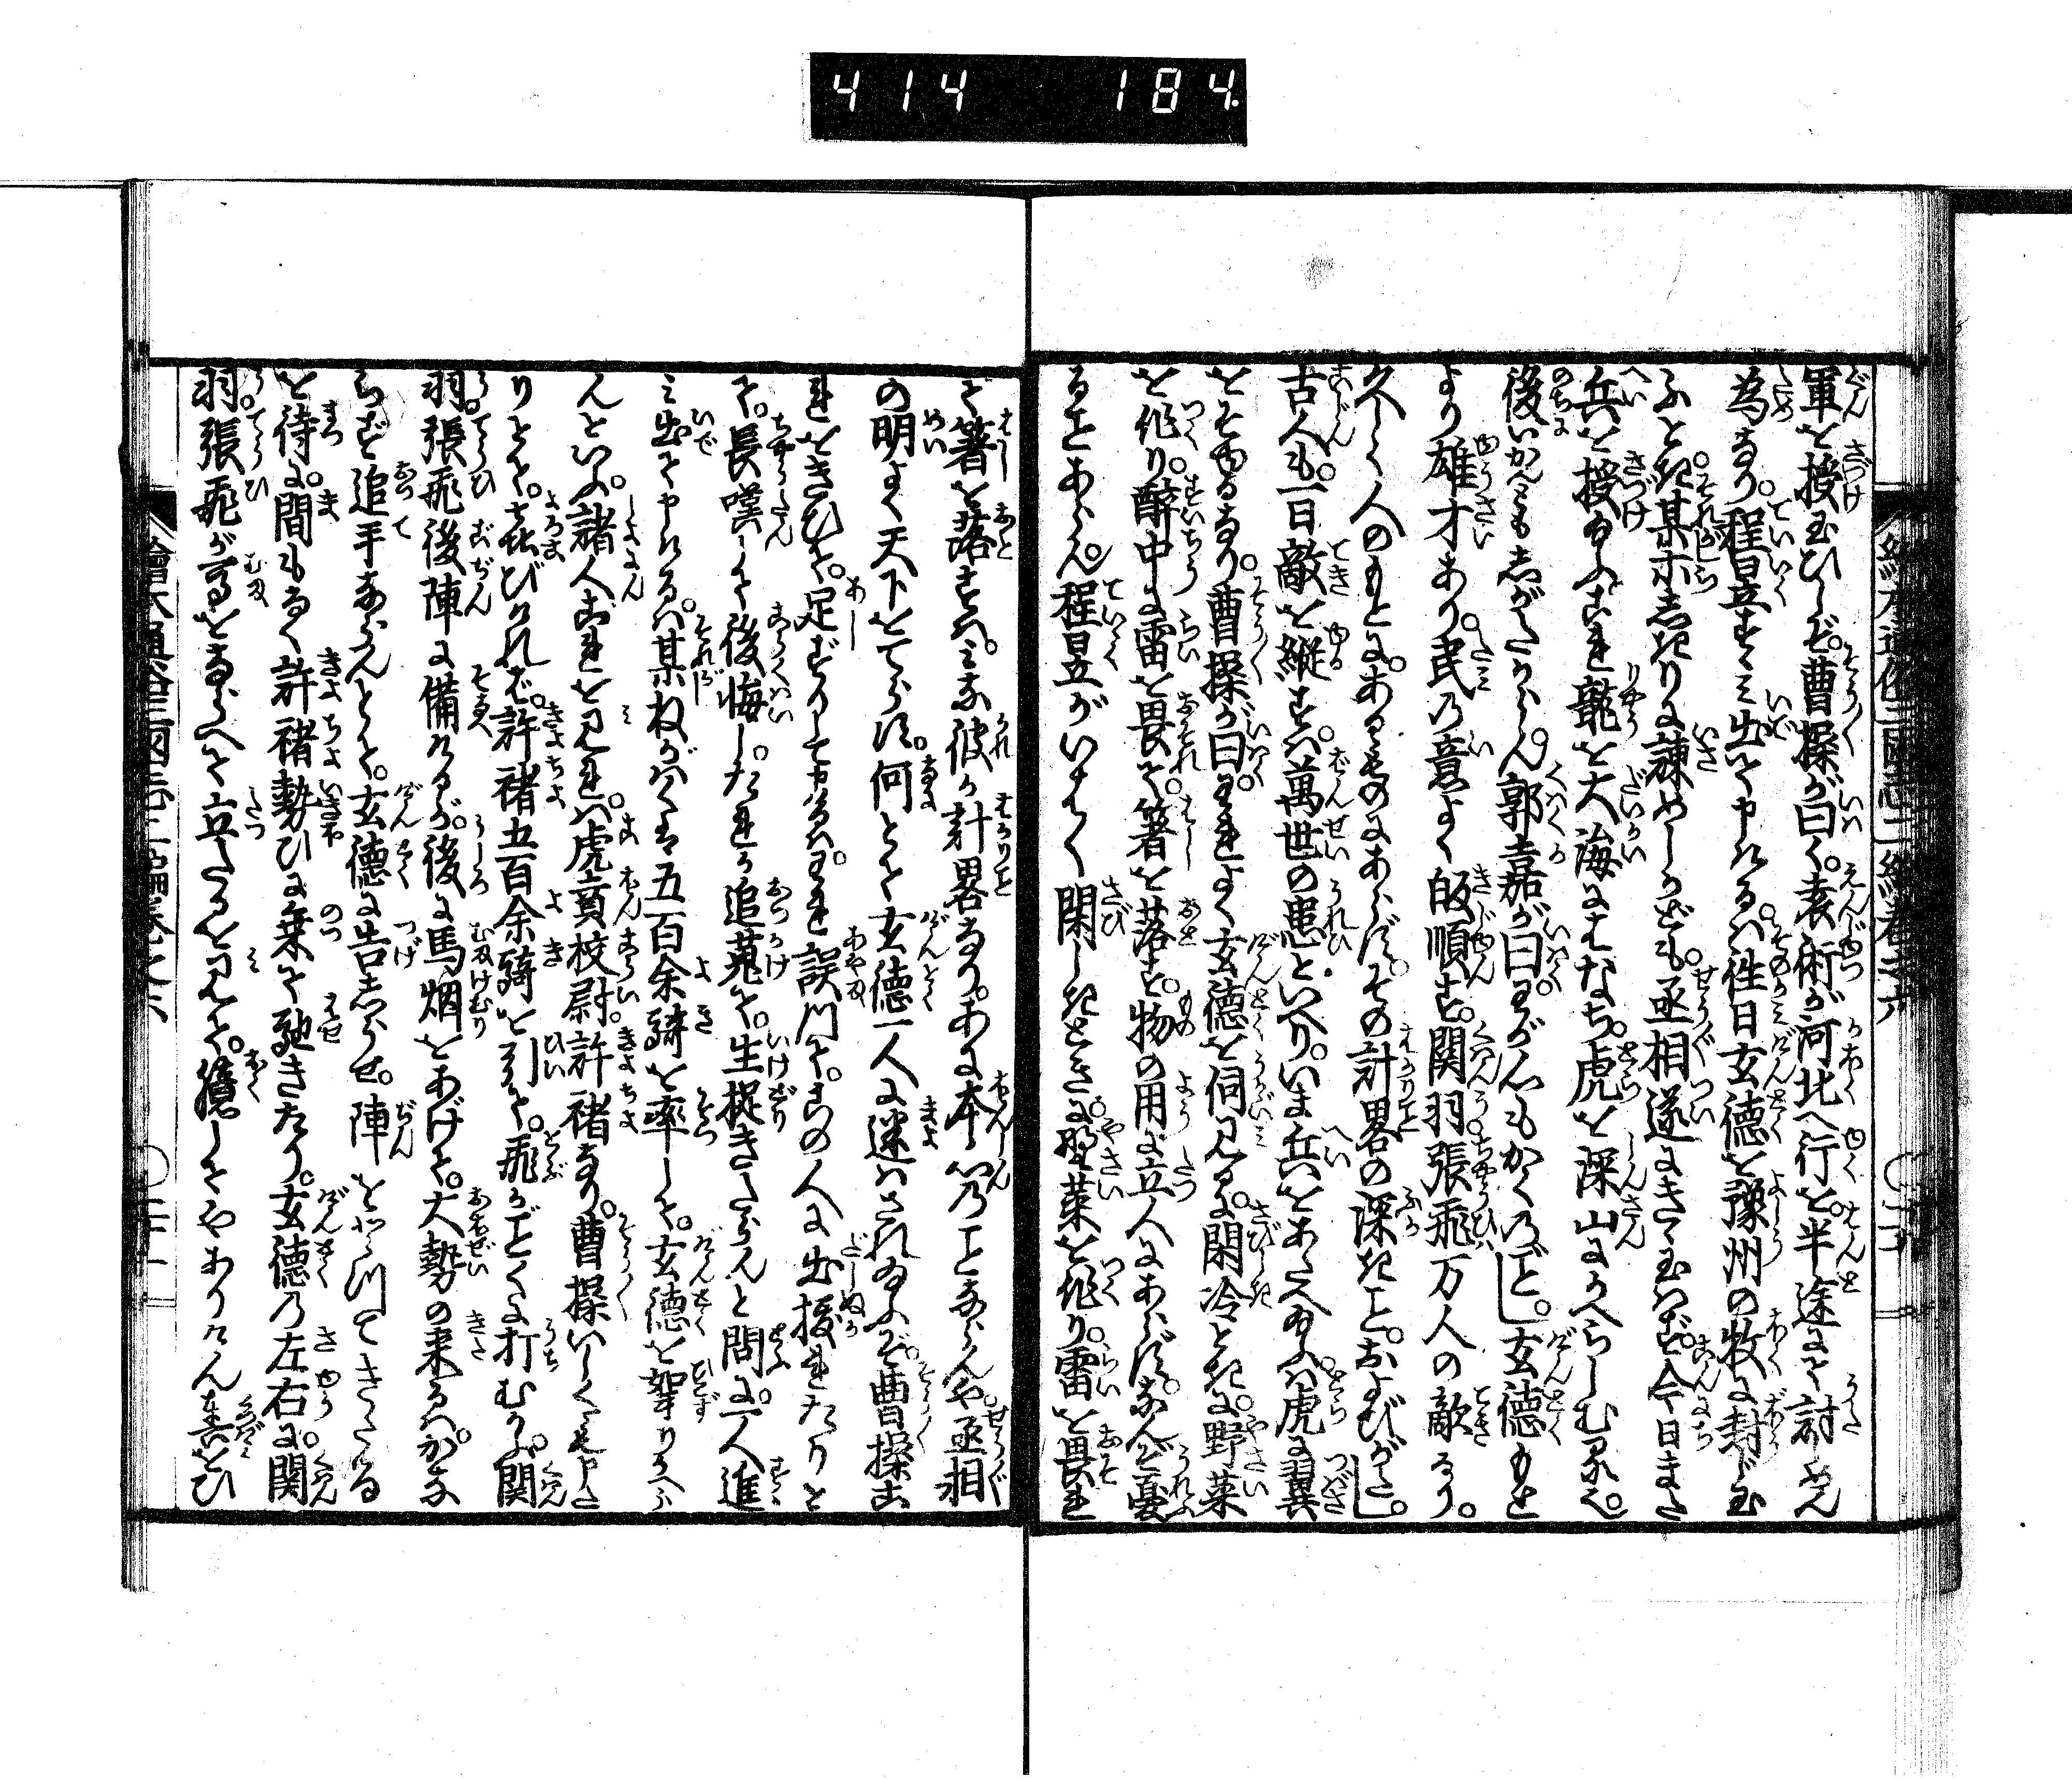 414 184
軍を授玉ひしぞ。曹操が曰く。袁術が河北へ行を。半途にて討しめん
為なり。程昱すゝみ出て申けるハ。往日玄徳を豫州の牧に封じ玉
ふとき。某ホしきりに諫めしかども。丞相遂にきゝ玉ハず。今日また
兵を授玉ふハこれ龍を大海にはなち。虎を深山にかへらしむるなり。
後いかんともしがたからん。郭嘉が曰。わが心もかくのごとし。玄徳もと
より雄才あり。民の意よく皈順す。関羽張飛ハ万人の敵なり。
久しく人のもとに。あるものにあらず。その計畧の深きこと。およびがたし。
古人も。一日敵を縦せバ。萬世の患といへり。いま兵をあたへ玉ふハ。虎に翼
をそゆるなり。曹操が曰。われよく玄徳を伺見るに。閑冷ときハ。野菜
を作り。醉中に雷を畏て。箸を落す。物の用に立人にあらず。なんぞ憂
ることあらん。程昱がいはく。閑しきときに。野菜を作り。雷を畏れ
て箸を落すハ。ミな彼が計畧なり。あに本心のことならんや。丞相
の明よく天下をてらす。何とて玄徳一人に迷ハされ玉ふぞ。曹操こ
れをきひて。足ずりして申けるハ。われ誤れて。この人に出抜れたりと
て。長嘆して後悔し。たれか追蒐て。生捉きたらんと問に。一人進
ミ出て申けるハ。某ねがハくハ五百余騎を率して。玄徳を挈りかへら
んといふ。諸人これを見れバ。虎賁校尉。許褚なり。曹操いしくも申た
りとて。喜びけれバ。許褚五百余騎を引て。飛がごとくに打むかふ。関
羽。張飛後陣に備けるが。後に馬烟をあげて。大勢の来るハ。かな
らず追手ならんとて。玄徳に告しらせ。陣をとゝのへてきたる
を待に。間もなく許褚勢ひに乗て馳きたり。玄徳の左右に。関
羽。張飛が馬をならべて立たるを見て。臆してやありけん。甚をひ